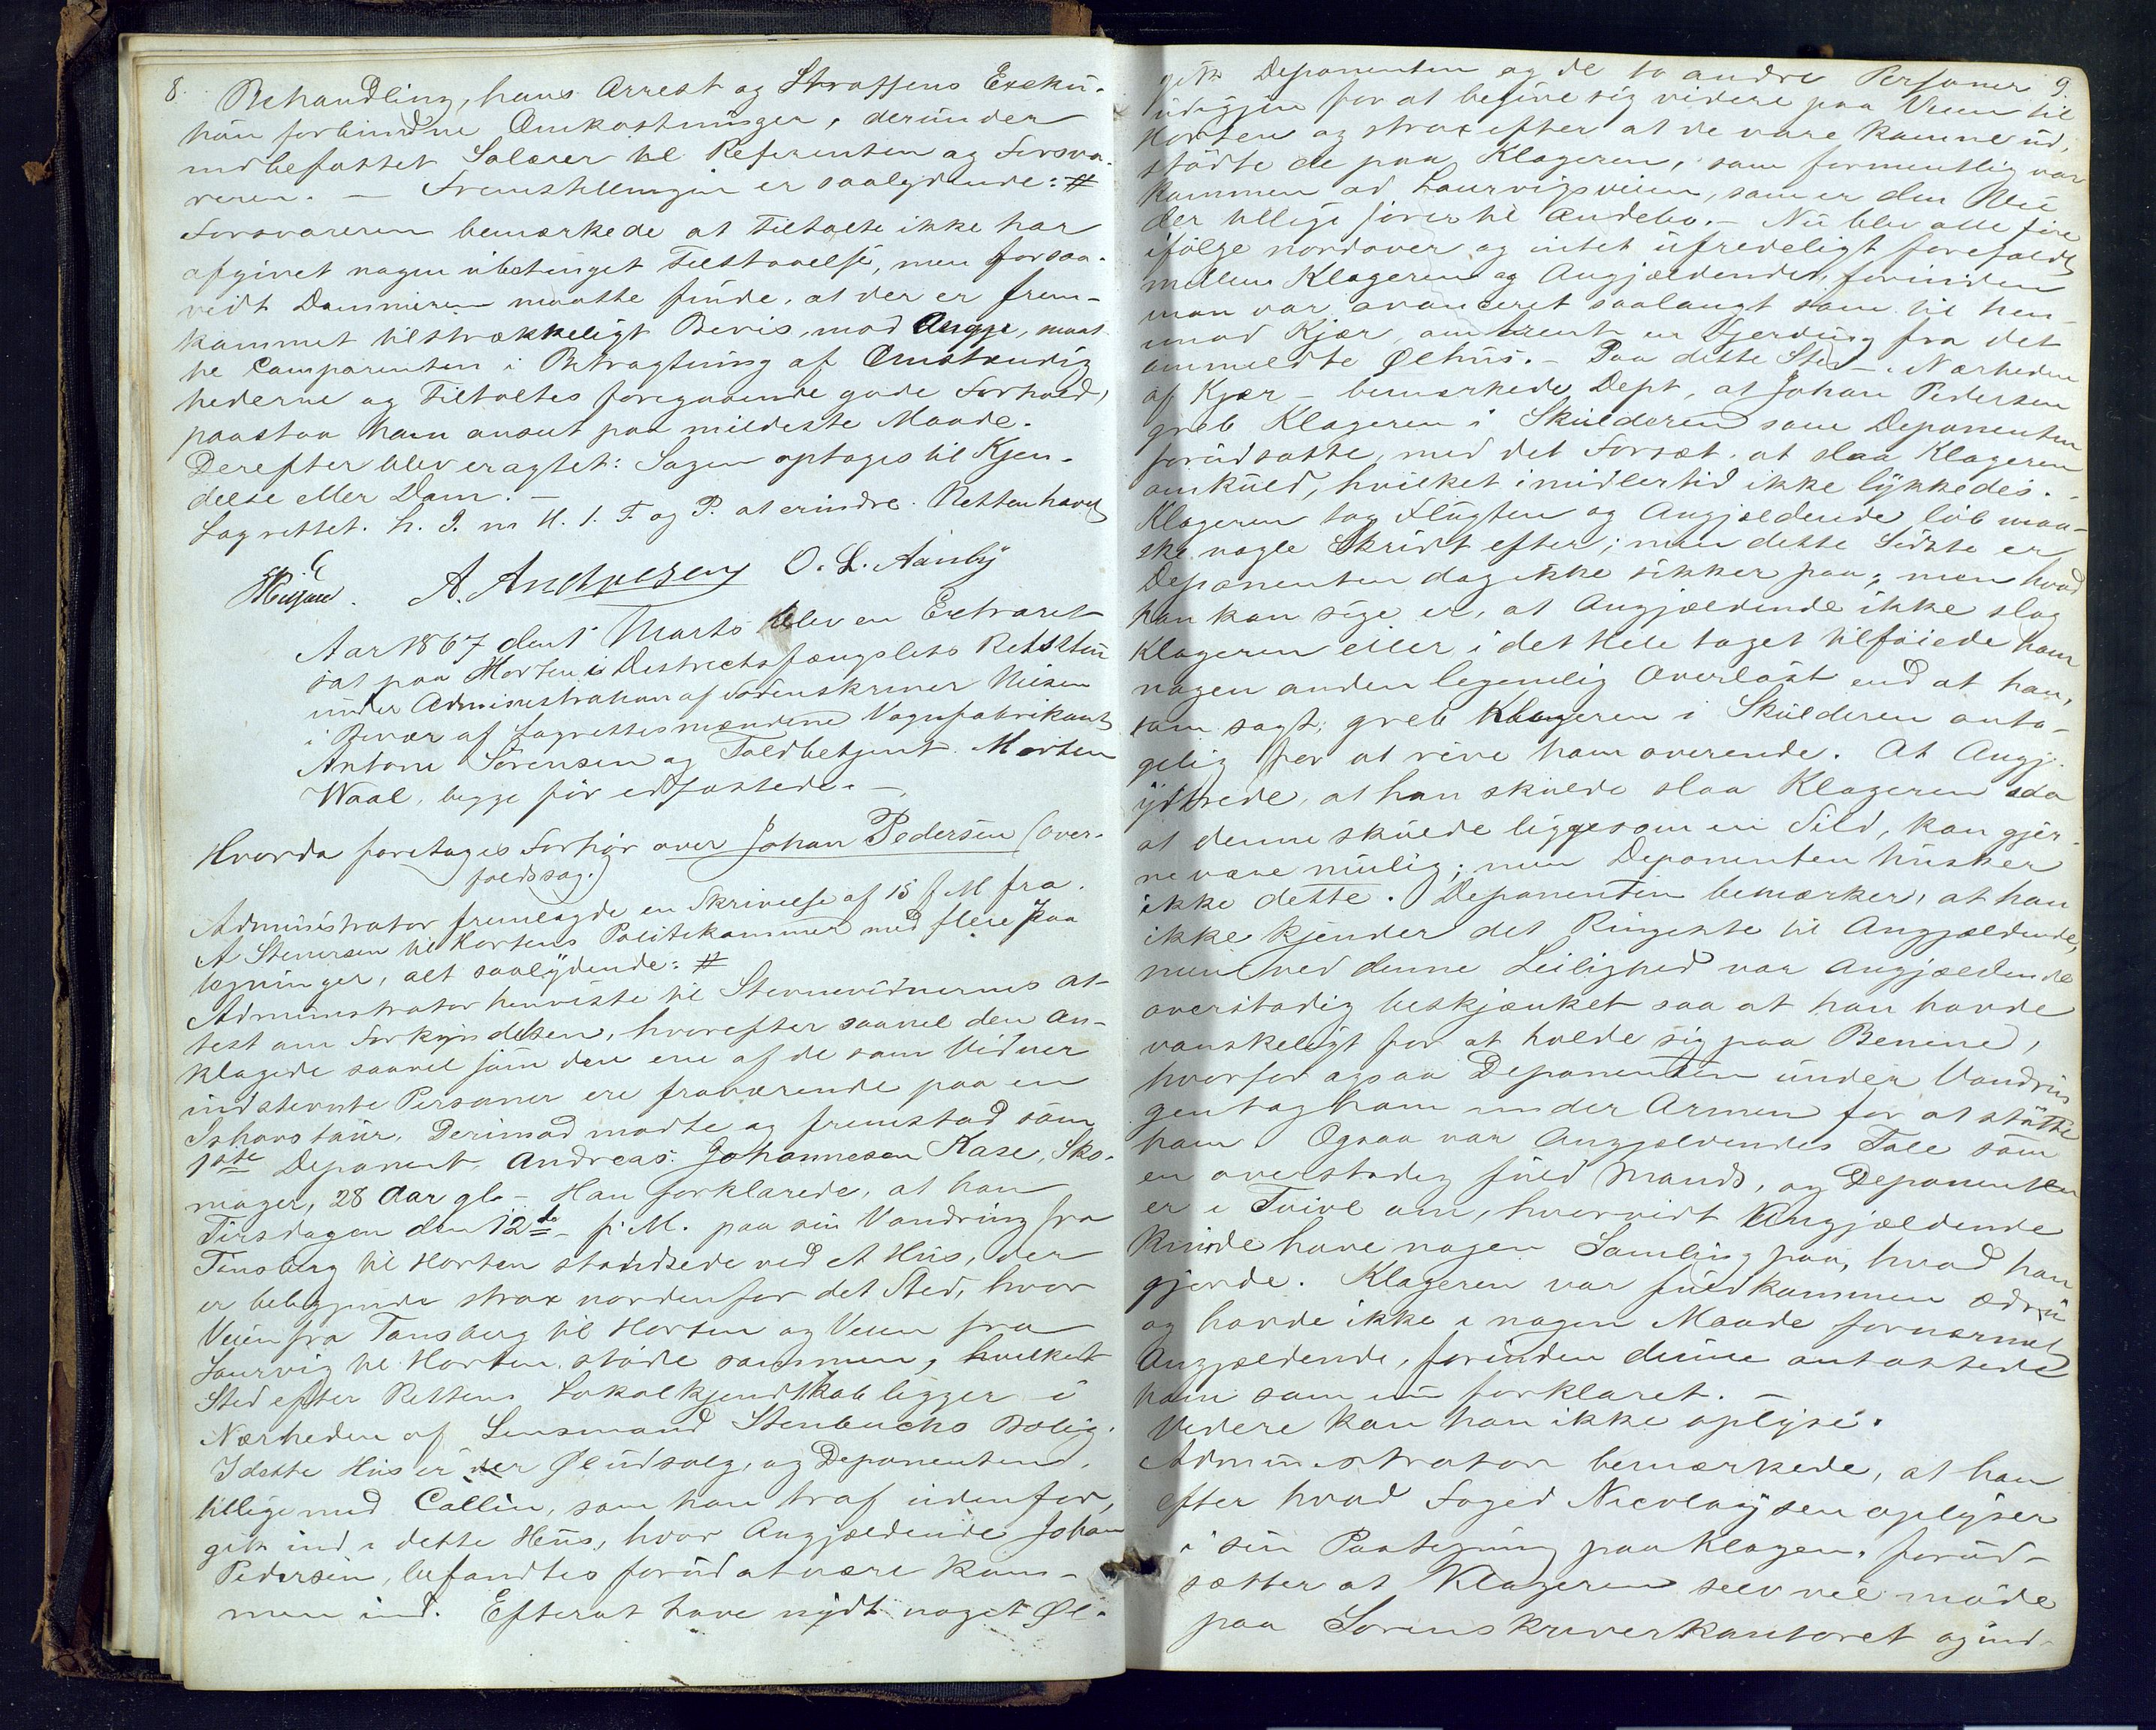 8.
Behandling, hans Arrest og Straffens Exeku-
tion forbundne Omkostninger, derunder
indbefattet Salærer til Referenten og Forsva-
reren. — Fremstillingen er saalydende: #
Forsvareren bemærkede at Tiltalte ikke har
afgivet nogen ubetinget Tilstaaelse, men forsaa-
vidt Dommeren maatte finde, at der er frem-
kommet tilstrækkeligt Bevis mod Angje, maat
te Comparenten i Betragtning af Omstændig
hederne og Tiltaltes foregaaende gode Forhold,
paastaa ham anseet paa mildeste Maade.
Derefter blev eragtet: Sagen optages til Kjen-
delse eller Dom. —
Lagrettet. L. I. m U. 1. T. og P. at erindre. Retten hævet
A. Andresen O. L. Aanby
Aar 1867 den 1 Marts blev en Extraret
sat paa Horten i Destrectsfængslets Retsstue
under Administration af Sorenskriver Nielsen
i Bevær af Lagrettesmændene Vognfabrikant
Antoni Sörensen og Toldbetjent Morten
Waal, begge før edfæstede. —
Hvorda foretoges Forhør over Johan Pedersen (Over-
faldssag.)
Administrator fremlagde en Skrivelse af 15 f M fra
A Stenersen til Hortens Politikammer med flere Paa
tegninger, alt saalydende: #
Administrator henviste til Stevnevidnernes At-
test om Forkyndelsen, hvorefter saavel den An-
klagede saavel som den ene af de som Vidner
indstevnte Personer ere fraværende paa en
Ishavstour. Derimod mødte og fremstod som
1ste Deponent, Andreas Johannesen Kase, Sko-
mager, 28 Aar gl. — Han forklarede, at han
Tirsdagen den 12te f. M. paa sin Vandring fra
Tønsberg til Horten standsede ved et Huus, der
er beliggende strax nordenfor det Sted, hvor
Veien fra Tønsberg til Horten og Veien fra
Laurvig til Horten støde sammen, hvilket
Sted efter Rettens Lokalkjendtskab ligger i
Nærheden af Lensmand Stenbuchs Bolig.
I dette Huus er der Ølüdsalg, og Deponenten,
tilligemed Callin, som han traf udenfor,
gik ind i dette Huus, hvor Angjældende Johan
Pedersen, befandtes forud at være kom-
men ind. Efterat have nydt noget Øl-
9.
gik Deponenten og de to andre Personer
udigjen for at begive sig videre paa Veien til
Horten og strax efter at de vare komne ud,
stødte de paa Klageren, som formentlig var
kommen ad Laurvigsveien, som er den Vei
der tillige fører til Andebo. — Nu blev alle fire
ifølge nordover og intet ufredeligt forefaldt
mellem Klageren og Angjældende, forinden
man var avanceret saalangt som til hen-
imod Kjær, omtrent en Fjerding fra det
ommeldte Ølhuus. — Paa dette Sted — i Nærheden
af Kjær — bemærkede Dept, at Johan Pedersen
greb Klageren i Skulderen som Deponenten
forudsatte, med det Forsæt, at slaa Klageren
omkuld, hvilket imidlertid ikke lykkedes. —
Klageren tog Flugten og Angjældende løb maa-
ske nogle Skridt efter; men dette Sidste er
Deponenten dog ikke sikker paa; men hvad
han kan sige er, at Angjældende ikke slog
Klageren eller i det Hele taget tilføiede ham
nogen anden legemlig Overlast end at han,
som sagt, greb Klageren i Skulderen anta-
gelig for at rive ham overende. At Angj.
yttrede, at han skulde slaa Klageren saa
at denne skulde ligge som en Sild, kan gjer-
ne være mulig; men Deponenten husker
ikke dette. Deponenten bemærker, at han
ikke kjender det Ringeste til Angjældende,
men ved denne Leilighed var Angjældende
overstadig beskjænket saa at han havde
vanskeligt for at holde sig paa Benene,
hvorfor ogsaa Deponenten under Vandrin
gen tog ham under Armen for at støtte
ham. Ogsaa var Angjældendes Tale som
en overstadig fuld Mands, og Deponenten
er i Tvivl om, hvorvidt Angjældende
kunde have nogen Samling paa, hvad han
gjorde. Klageren var fuldkommen ædru
og havde ikke i nogen Maade fornærmet
Angjældende, forinden denne antastede
ham som nu forklaret. —
Videre kan han ikke oplyse.
Administrator bemærkede, at han
efter hvad Foged Nicolaysen oplyser
i sin Paategning paa Klagen, forud-
sætter at Klageren selv vil møde
paa Sorenskriverkontoret og ind-